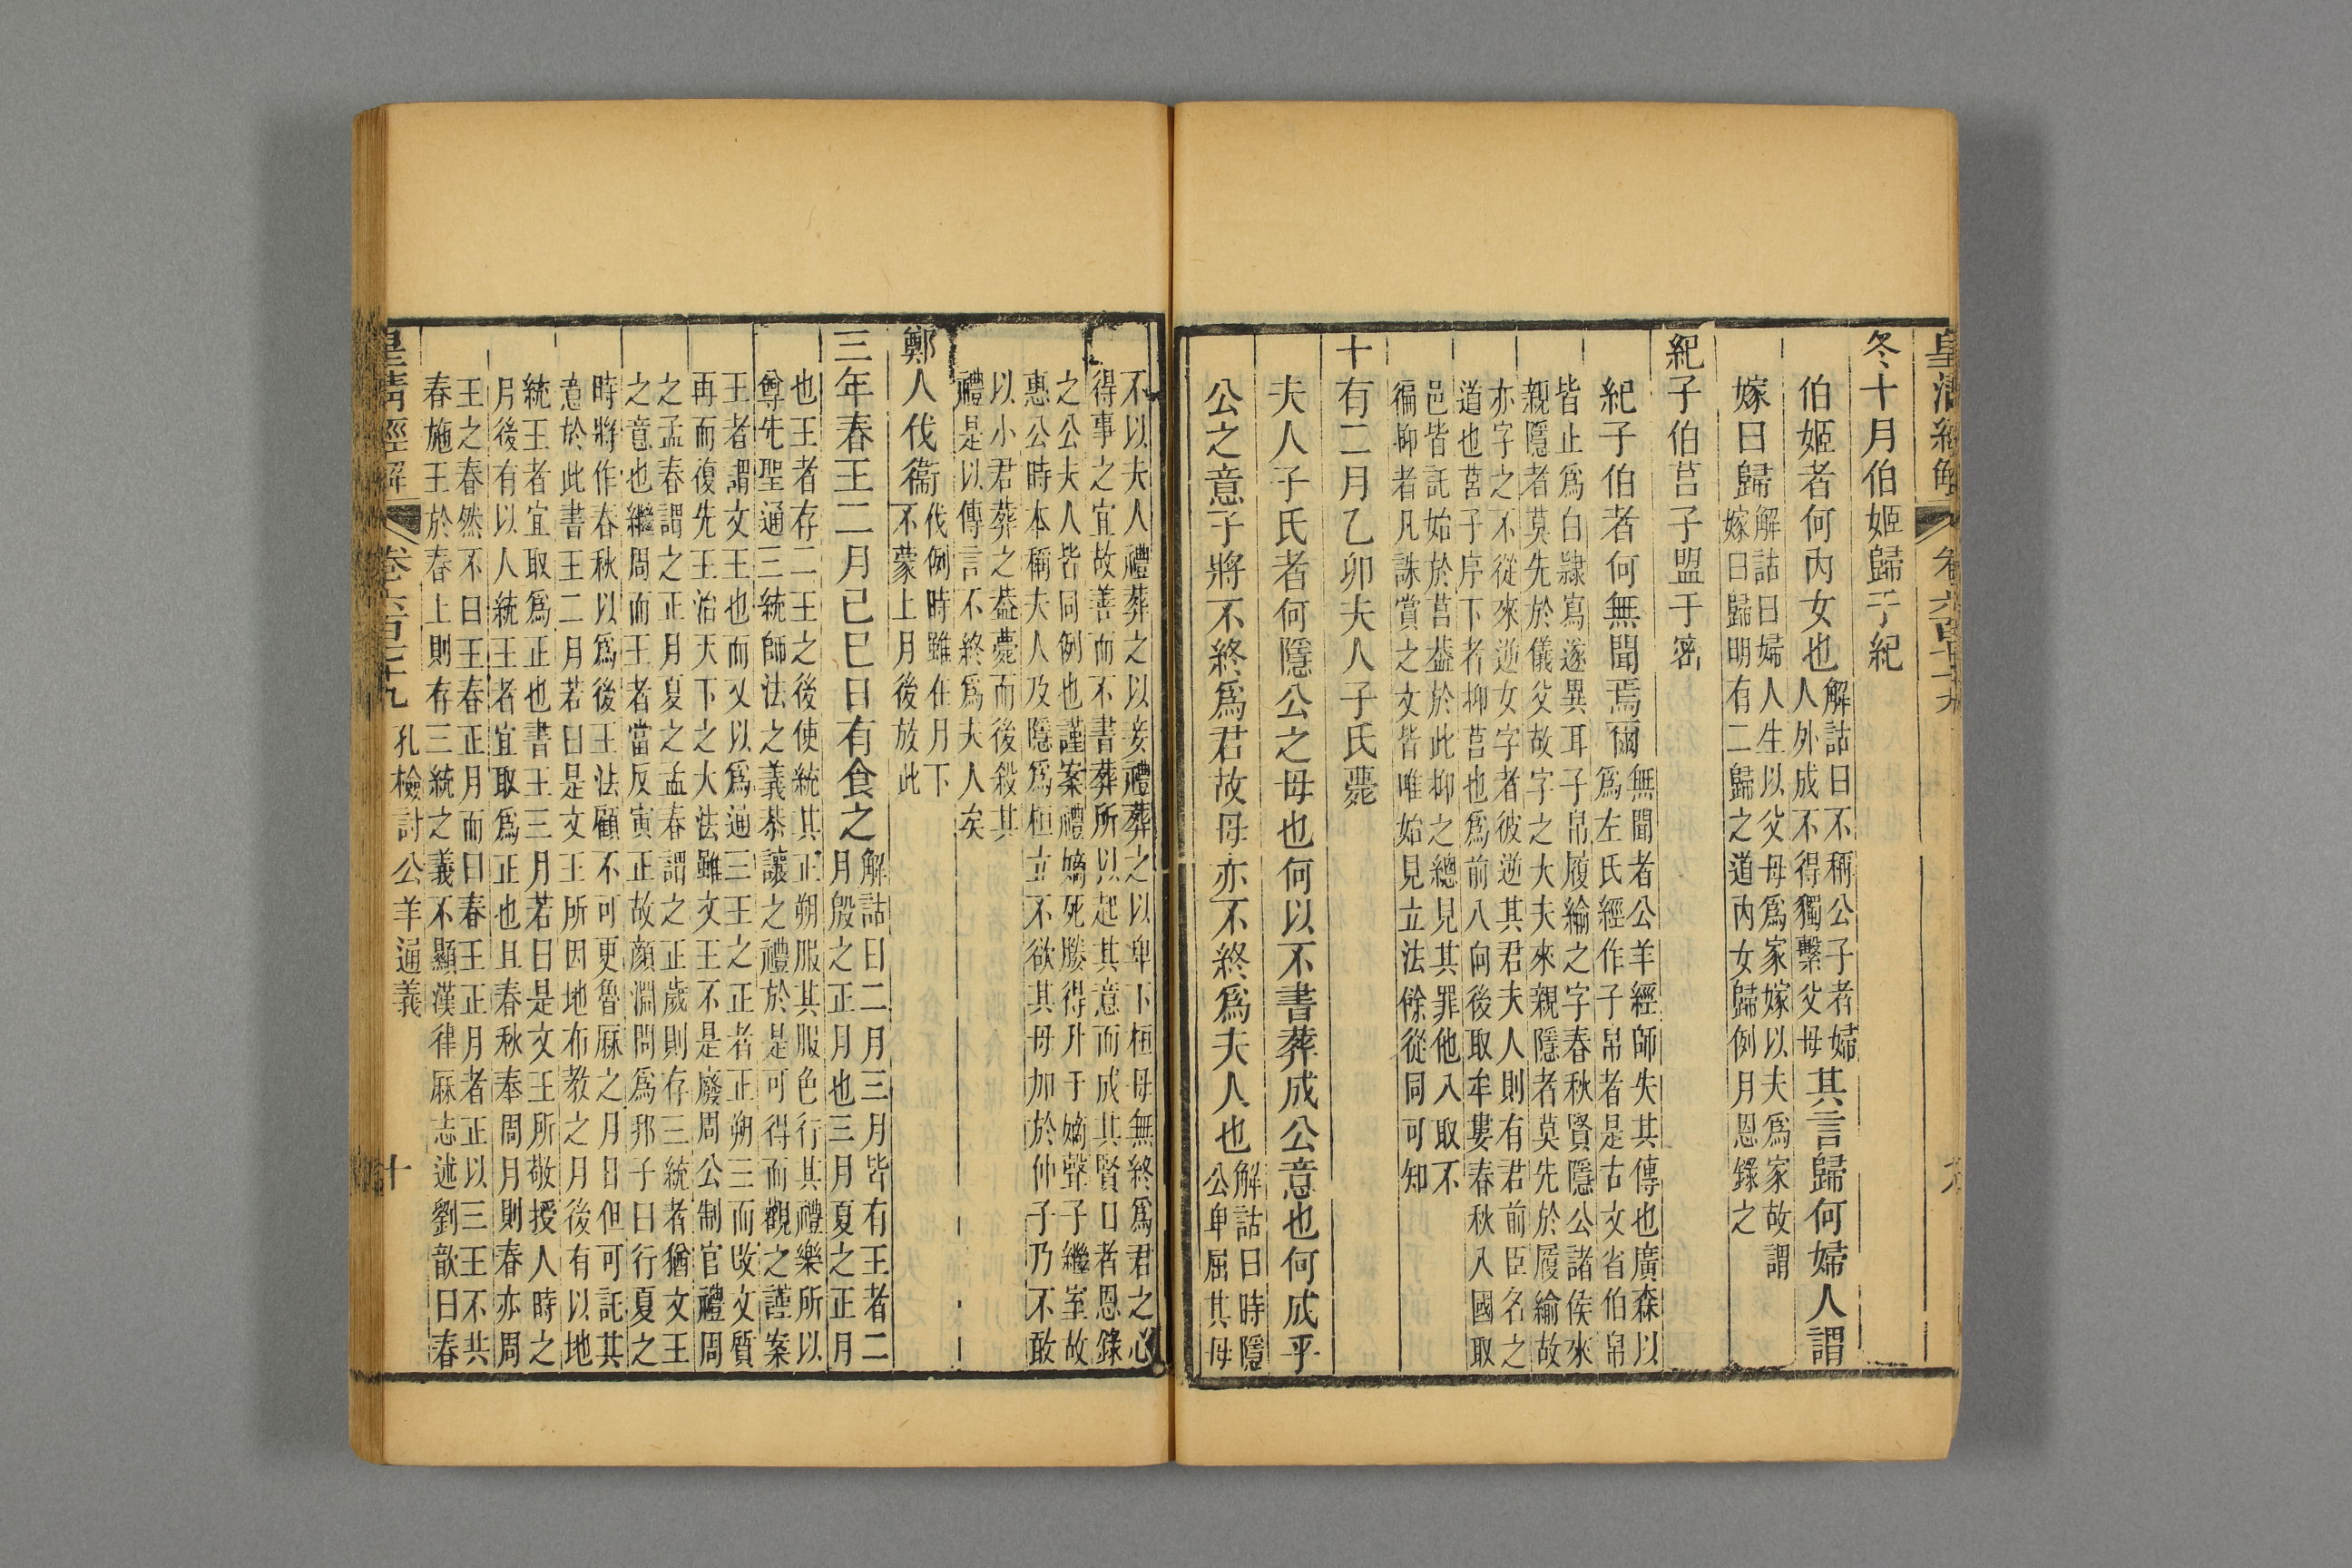 皇清經解
卷六百七十九
九
冬十月伯姬歸于紀
伯姬者何內女也
解詁曰不稱公子者婦
人外成不得獨繫父母
其言歸何婦人謂
嫁曰歸
解詁曰婦人生以父母爲家嫁以夫爲家故謂
嫁曰歸明有二歸之道內女歸例月恩錄之
紀子伯莒子盟于密
紀子伯者何無聞焉爾
無聞者公羊經師失其傳也廣森以
爲左氏經作子帛者是古文省伯帛
皆止爲白隸寫遂異耳子帛履緰之字春秋賢隱公諸侯來
親隱者莫先於儀父故字之大夫來親隱者莫先於履緰故
亦字之不從來逆女字者彼逆其君夫人則有君前臣名之
道也莒子序下者抑莒也爲前入向後取牟婁春秋入國取
邑皆託始於莒葢於此抑之總見其罪他入取不
徧抑者凡誅賞之文皆唯始見立法餘從同可知
十有二月乙卯夫人子氏薨
夫人子氏者何隱公之母也何以不書葬成公意也何成乎
公之意子將不終爲君故母亦不終爲夫人也
解詁曰時隱
公卑屈其母
不以夫人禮葬之以妾禮葬之以卑下桓母無終爲君之心
得事之宜故善而不書葬所以起其意而成其賢日者恩錄
之公夫人皆同例也謹案禮嫡死媵得升于嫡聲子繼室故
惠公時本稱夫人及隱爲桓立不欲其母加於仲子乃不敢
以小君葬之葢薨而後殺其
禮是以傳言不終爲夫人矣
鄭人伐衞
伐例時雖在月下
不蒙上月後放此
三年春王二月己巳日有食之
解詁曰二月三月皆有王者二
月殷之正月也三月夏之正月
也王者存二王之後使統其正朔服其服色行其禮樂所以
尊先聖通三統師法之義恭讓之禮於是可得而觀之謹案
王者謂文王也而又以爲通三王之正者正朔三而改文質
再而復先王治天下之大法雖文王不是廢周公制官禮周
之孟春謂之正月夏之孟春謂之正歲則存三統者猶文王
之意也繼周而王者當反寅正故顏淵問爲邦子曰行夏之
時將作春秋以爲後王法顧不可更魯厤之月日但可託其
意於此書王二月若曰是文王所因地布教之月後有以地
統王者宜取爲正也書王三月若曰是文王所敬授人時之
月後有以人統王者宜取爲正也且春秋奉周月則春亦周
王之春然不曰王春正月而曰春王正月者正以三王不共
春施王於春上則存三統之義不顯漢律厤志述劉歆曰春
皇清經解
卷六百七十九
孔檢討公羊通義
十